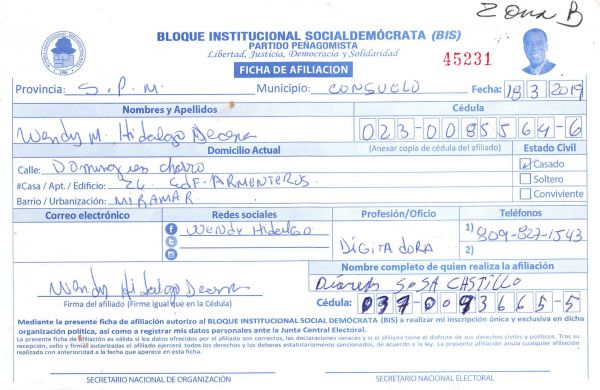 Zona B
BLOQUE INSTITUCIONAL SOCIALDEMÓCRATA (BIS)
PARTIDO PEÑAGOMISTA
Libertad, Justicia, Democracia y Solidaridad
FICHA DE AFILIACION
45231
Provincia: S.P.M. Municipio: CONSUELO Fecha: 18 3 2019
Nombres y Apellidos Cédula
Wendy M. Hidalgo 023-0085564-6
Domicilio Actual (Anexar copia de cédula del afiliado) Estado Civil
Calle: Domingues Charro Casado
#Casa / Apt. / Edificio: 26 Edf. ARMENTEROS Soltero
Barrio / Urbanización: MIRAMAR Conviviente
Correo electrónico Redes sociales Profesión/Oficio Teléfonos
Wendy Hidalgo DIGITADORA 1) 809-827-1543
2)
Nombre completo de quien realiza la afiliación
Wendy Hidalgo SOSA CASTILLO
Firma del afiliado (Firme igual que en la Cédula) Cédula: 037-0093665-5
Mediante la presente ficha de afiliación autorizo al BLOQUE INSTITUCIONAL SOCIAL DEMÓCRATA (BIS) a realizar mi inscripción única y exclusiva en dicha
organización política, así como a registrar mis datos personales ante la Junta Central Electoral.
La presente ficha de afiliación es válida si los datos ofrecidos por el afiliado son correctos, las declaraciones veraces y si el mismo tiene el disfrute de sus derechos civiles y políticos. Tras su
recepción, sello y firmas autorizadas el afiliado ejercerá todos los derechos y los deberes estatutariamente sancionados, de acuerdo a la ley. La presente afiliación anula cualquier afiliación
realizada con anterioridad a la fecha que aparece en esta ficha.
SECRETARIO NACIONAL DE ORGANIZACIÓN SECRETARIO NACIONAL ELECTORAL